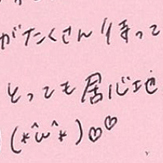 がたくさん待って
とっても居心地
(*^ω^*)♡♡